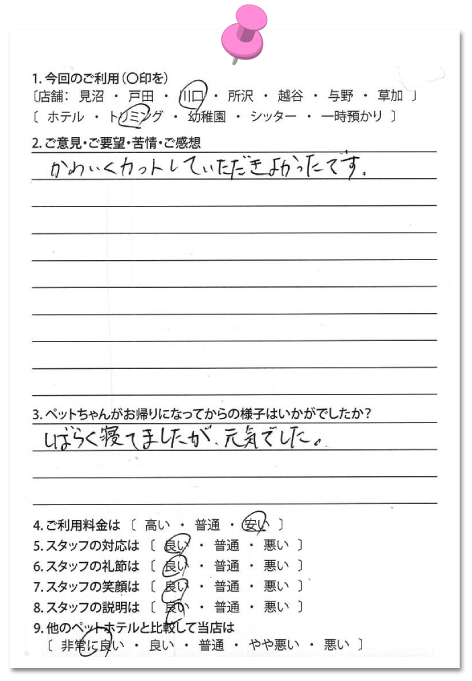 1. 今回のご利用(〇印を)
〔店舗: 見沼 ・ 戸田 ・ 川口 ・ 所沢 ・ 越谷 ・ 与野 ・ 草加 〕
〔 ホテル ・ トリミング ・ 幼稚園 ・ シッター ・ 一時預かり 〕
2. ご意見・ご要望・苦情・ご感想
かわいくカットしていただきよかったです。
3. ペットちゃんがお帰りになってからの様子はいかがでしたか?
しばらく寝てましたが、元気でした。
4. ご利用料金は 〔 高い ・ 普通 ・ 安い 〕
5. スタッフの対応は 〔 良い ・ 普通 ・ 悪い 〕
6. スタッフの礼節は 〔 良い ・ 普通 ・ 悪い 〕
7. スタッフの笑顔は 〔 良い ・ 普通 ・ 悪い 〕
8. スタッフの説明は 〔 良い ・ 普通 ・ 悪い 〕
9. 他のペットホテルと比較して当店は
〔 非常に良い ・ 良い ・ 普通 ・ やや悪い ・ 悪い 〕